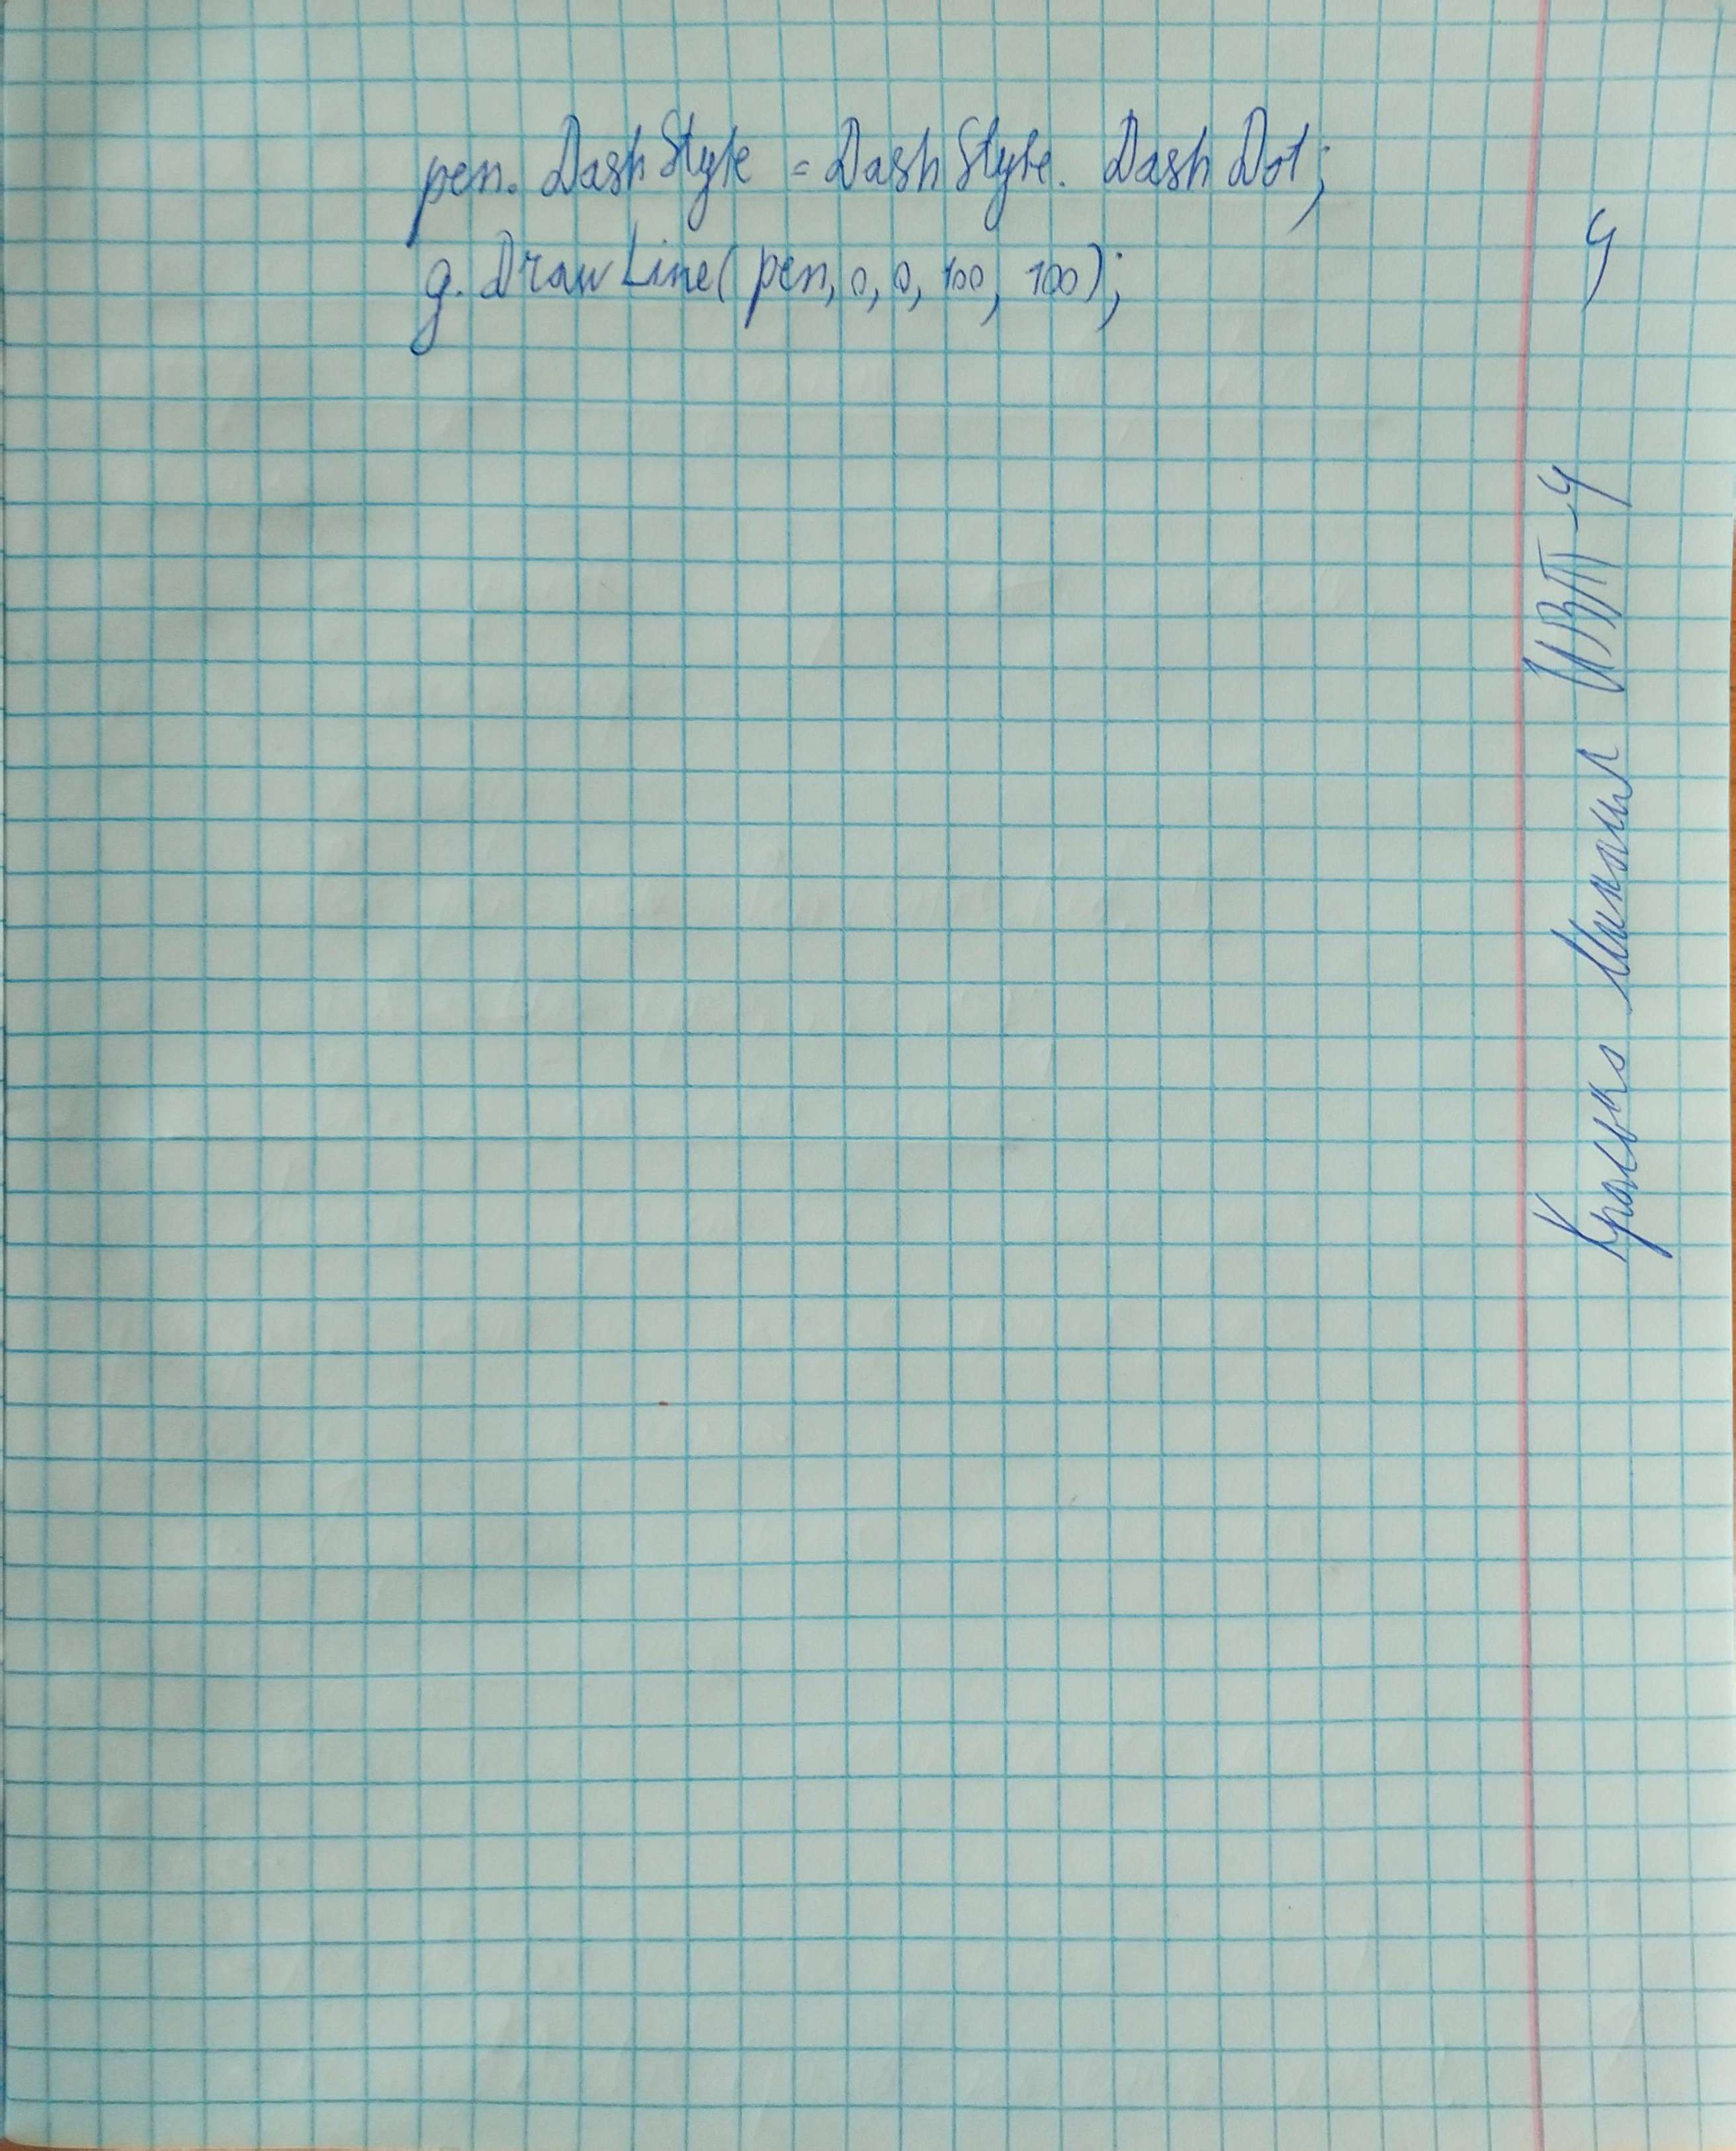 pen. DashStyle = DashStyle. DashDot;
g. DrawLine(pen, 0, 0, 100, 100);
4
Михаил ИВТ-4